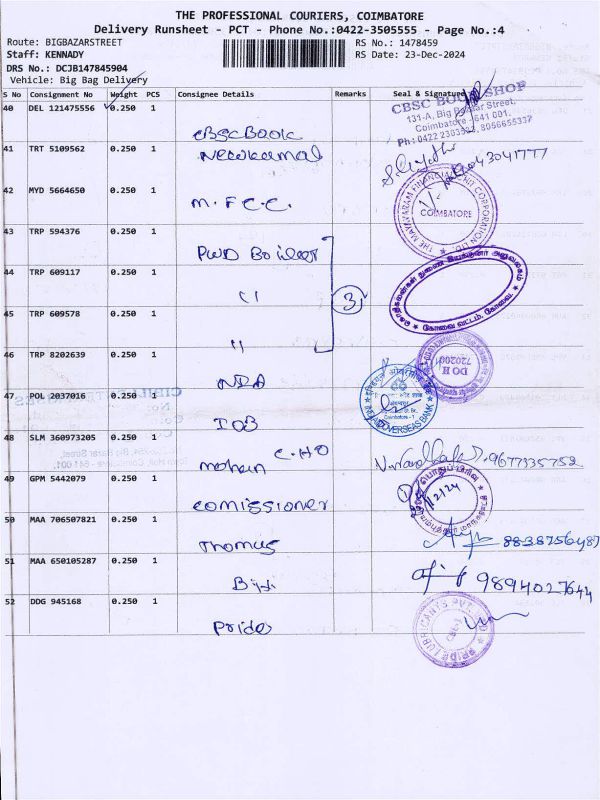 THE PROFESSIONAL COURIERS, COIMBATORE
Delivery Runsheet - PCT - Phone No.:0422-3505555 - Page No.:4
Route: BIGBAZARSTREET RS No.: 1478459
Staff: KENNADY RS Date: 23-Dec-2024
DRS No.: DCJB147845904
Vehicle: Big Bag Delivery
S No Consignment No Weight PCS Consignee Details Remarks Seal & Signature
40 DEL 121475556 0.250 1 CBSC Book
CBSC BOOK SHOP
131-A, Big Bazaar Street,
Coimbatore - 641 001.
41 TRT 5109562 0.250 1 Newkamal
42 MYD 5664650 0.250 1 M.F.C.C.
COIMBATORE
43 TRP 594376 0.250 PWD Boiler
44 TRP 609117 0.250 1 "
3
45 TRP 609578 0.250 1 "
கோவை வட்டம், கோவை.
46 TRP 8202639 0.250 1
47 POL 2037016 0.250 IOB
INDIAN OVERSEAS BANK
48 SLM 360973205 0.250 1 mohan C.HO 9677335752
49 GPM 5442079 0.250 1 comissioner
50 MAA 706507821 0.250 1 Thomus
51 MAA 650105287 0.250 1 9894027644
52 DDG 945168 0.250 1 Pride
PRIDE LUBRICANTS PVT. LTD